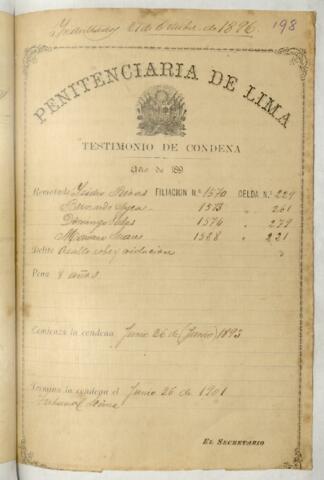 de 1896. 198
PENITENCIARIA DE LIMA
TESTIMONIO DE CONDENA
Año de 189
Rematado Isidro FILIACION N.º 1570 CELDA N.º 229
Bernardo 1573 " 261
Domingo 1574 " 279
Mariano 1588 " 221
Delito Asalto robo y violacion
Pena 8 años.
Comienza la condena Junio 26 de (Junio) 1893
Termina la condena el Junio 26 de 1901
Tribunal
EL SECRETARIO